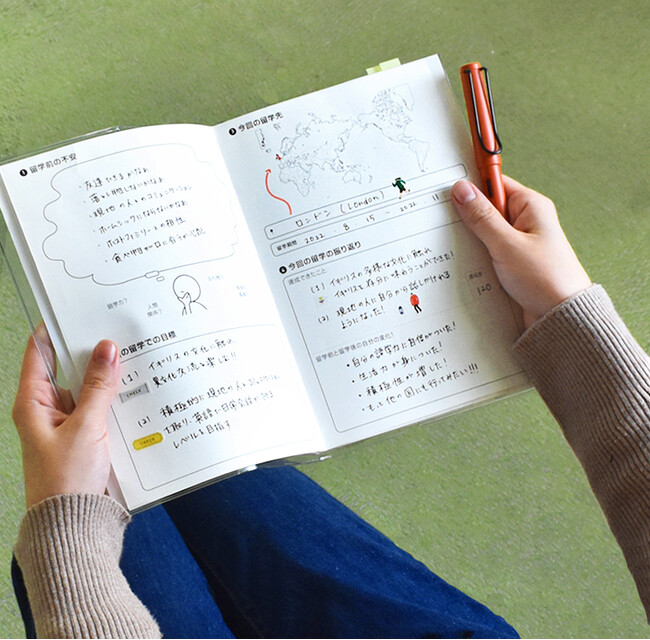 ❶ 留学前の不安
・友達できるかなぁ
・現地の人とのコミュニケーション
・ホームシックにならないかなぁ
・ホストファミリーとの相性
・食べ物が口に合うか
留学の?
人間
関係?
の留学での目標
(1) イギリスの文化に触れ
異文化交流を楽しむ!!
CHECK
(2) 積極的に現地の人とコミュニケーション
を取り、英語で日常会話ができる
CHECK
レベルを目指す
❸ 今回の留学先
ロンドン (London)
留学期間 2022 . 8 . 15 - 2022 . 11
❹ 今回の留学の振り返り
達成できたこと
(1) イギリスの多様な文化に触れ
イギリスを存分に味わうことができた!
(2) 現地の人に自分の力で話しかけれる
ようになった!
達成度
120
留学前と留学後の自分の変化!
・自分の語学力に自信がついた!
・生活力が身についた!
・積極性が増した!
・もっと他の国にも行ってみたい!!!